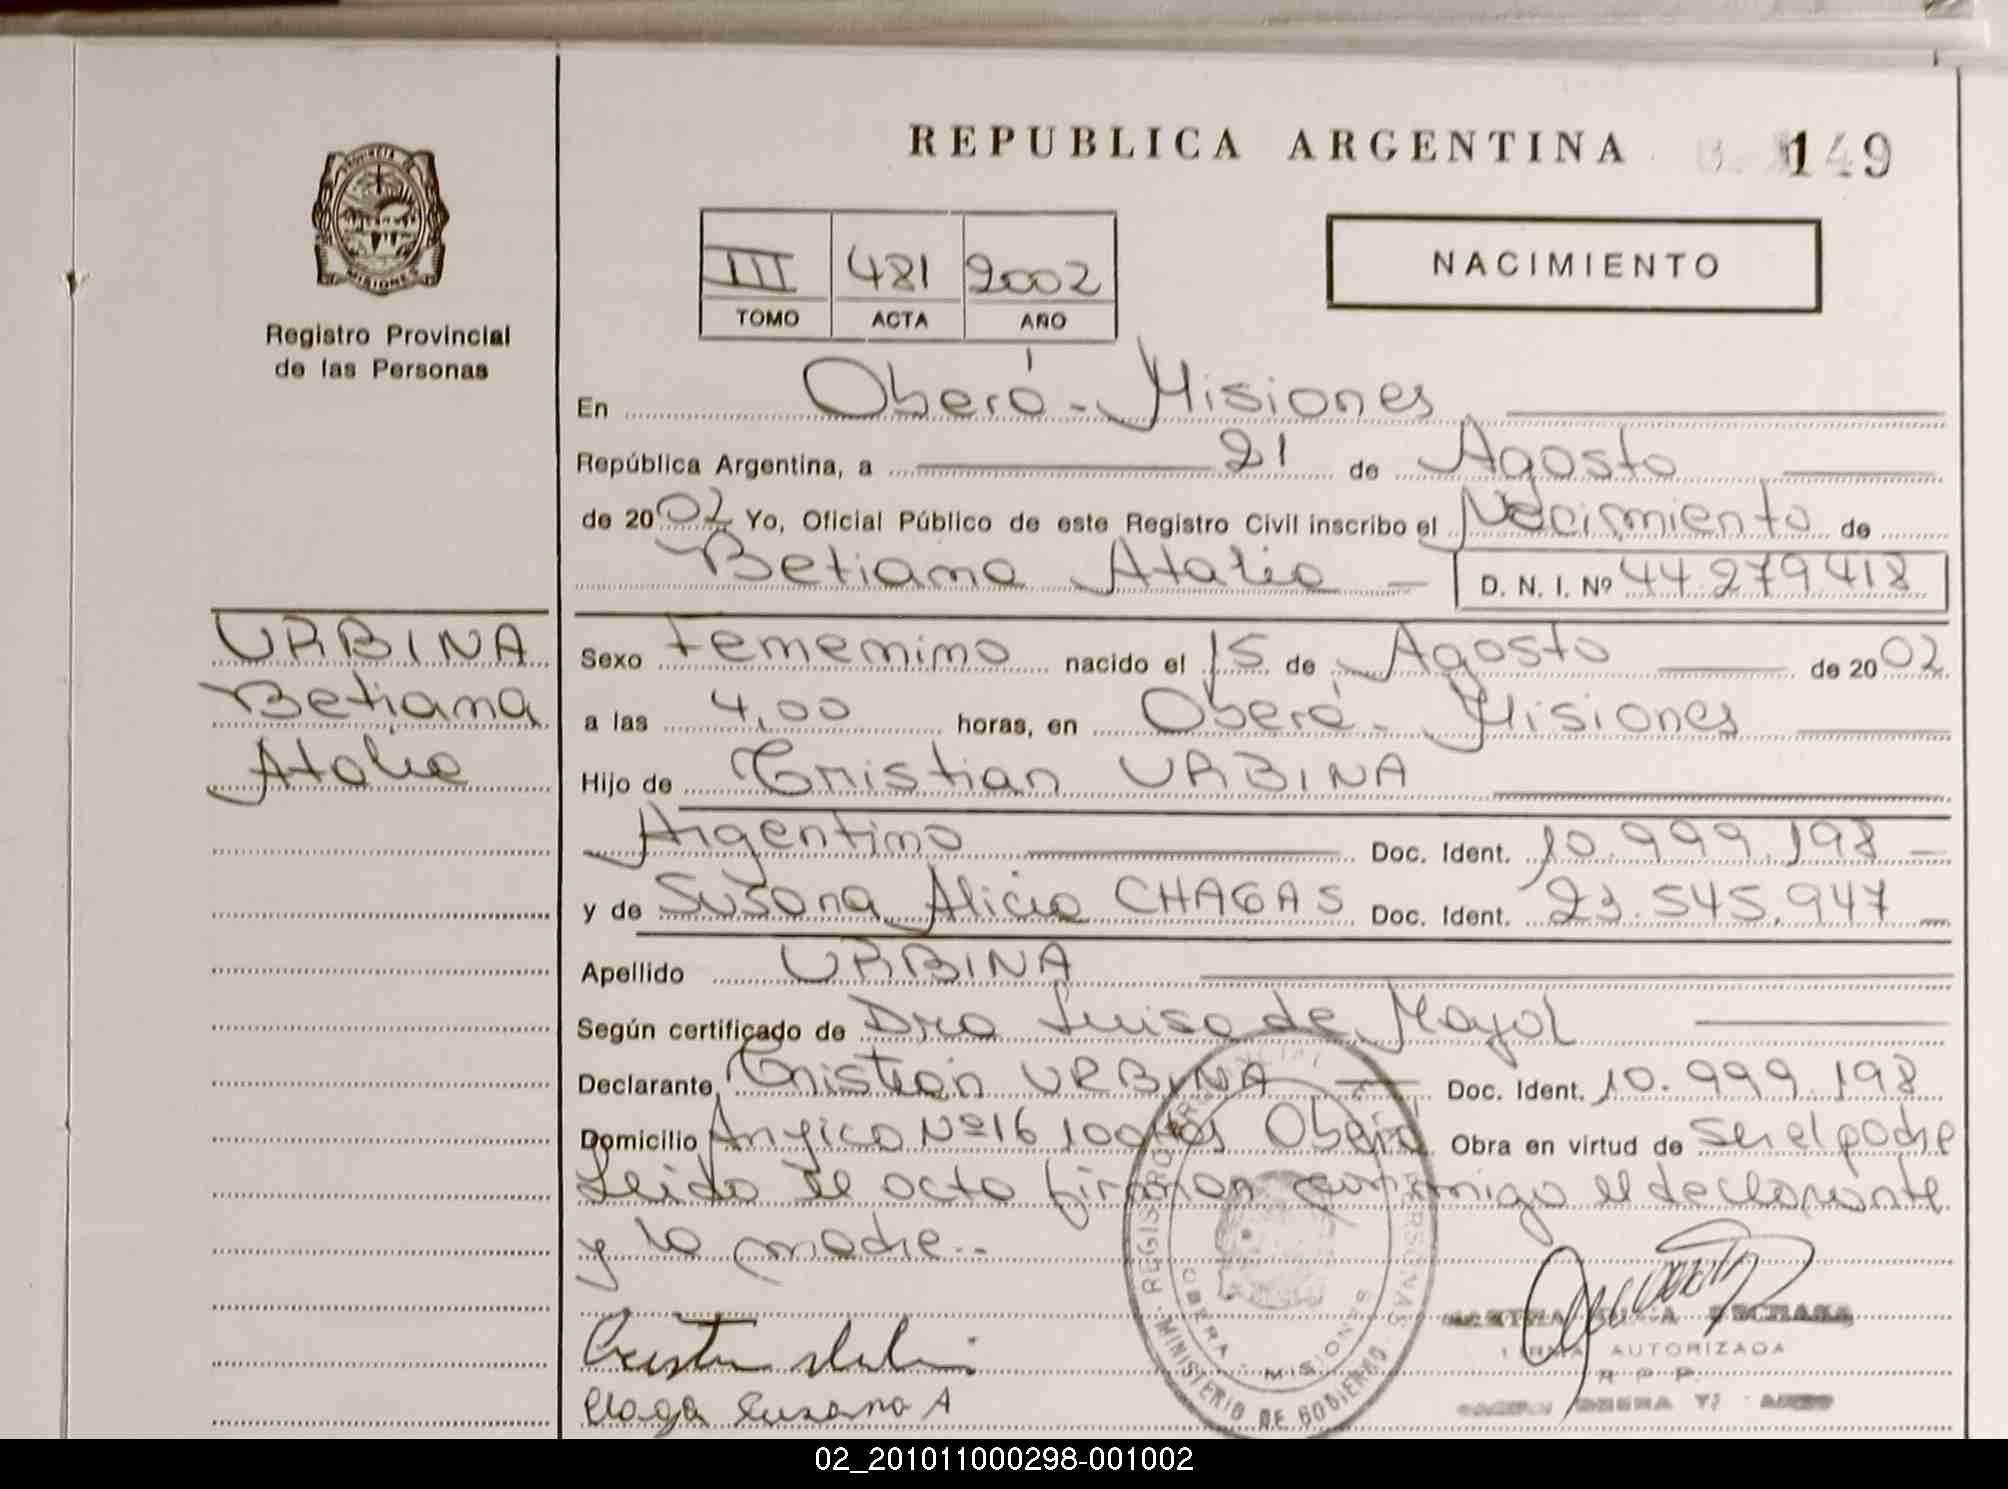 REPUBLICA ARGENTINA 149
PROVINCIA DE
MISIONES
Registro Provincial
de las Personas
III 481 2002
TOMO ACTA AÑO
NACIMIENTO
En Oberá - Misiones
República Argentina, a 21 de Agosto
de 2002 Yo, Oficial Público de este Registro Civil inscribo el Nacimiento de
Betiana Atalia - D. N. I. Nº 44.279418
URBINA
Betiana
Atalia
Sexo Femenino nacido el 15 de Agosto de 2002
a las 4,00 horas, en Oberá - Misiones
Hijo de Cristian URBINA
Argentino Doc. Ident. 10.999.198 -
y de Susana Alicia CHAGAS Doc. Ident. 23.545.947 -
Apellido URBINA
Según certificado de Dra Luisa de Mayol
Declarante Cristian URBINA - Doc. Ident. 10.999.198
Domicilio Nº 16 Oberá Obra en virtud de ser el padre
Leida el acta firman conmigo el declarante
y la madre..
Chaga Susana A
REGISTRO PROVINCIAL DE PERSONAS
OBERA - MISIONES
MINISTERIO DE GOBIERNO
FIRMA AUTORIZADA
R P P
02_201011000298-001002